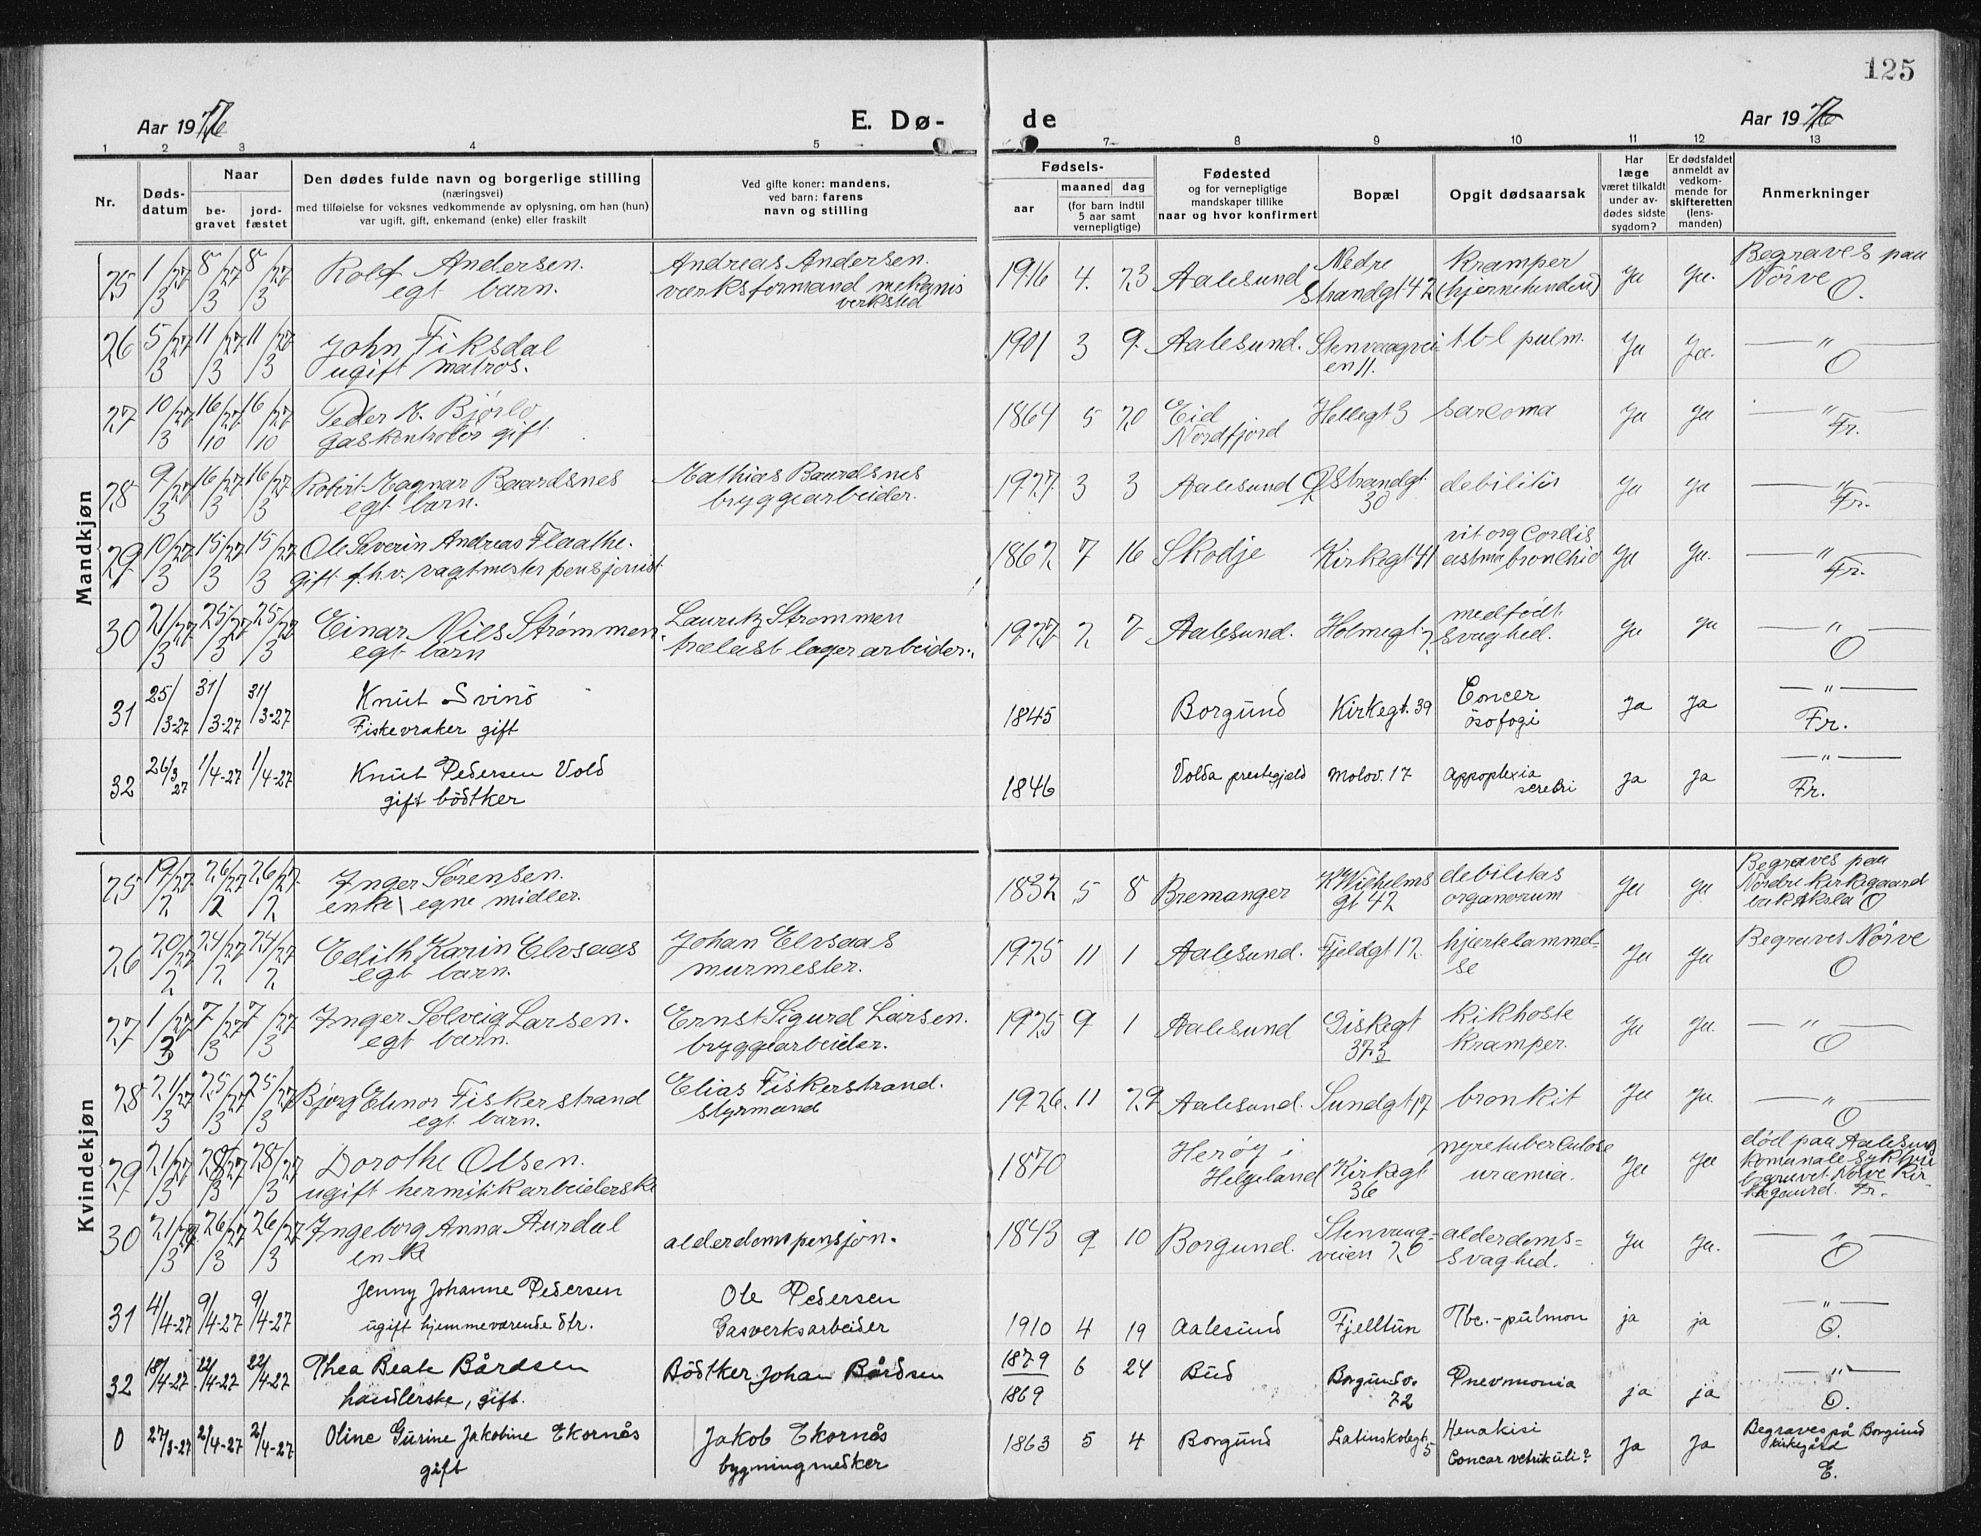 125
Aar 19
E. Dø-
de
Aar 19
1 2 3 4 5 7 8 9 10 11 12 13
Nr.
Døds-
datum
Naar
be-
gravet
jord-
fæstet
Den dødes fulde navn og borgerlige stilling
(næringsvei)
med tilføielse for voksnes vedkommende av oplysning, om han (hun)
var ugift, gift, enkemand (enke) eller fraskilt
Ved gifte koner: mandens,
ved barn: farens
navn og stilling
Fødsels-
aar
maaned dag
(for barn indtil
5 aar samt
vernepligtige)
Fødested
og for vernepligtige
mandskaper tillike
naar og hvor konfirmert
Bopæl
Opgit dødsaarsak
Har
læge
været tilkaldt
under av-
dødes sidste
sygdom?
Er dødsfaldet
anmeldt av
vedkom-
mende for
skifteretten
(lens-
manden)
Anmerkninger
Mandkjøn
25 1/3 27 8/3 27 8/3 27 Rolf Andersen. Andreas Andersen. 1916 4. 23 Aalesund Nedre Kramper ja ja. Begraves paa
egt barn. værksformand mekanis verksted Strandgt 42 (hjernehinden) Nørve O.
26 5/3 27 11/3 27 11/3 27 John Fiksdal 1901 3 9. Aalesund. Stenvaagvei- tbl pulm. ja ja. — " —
ugift matros. en 11. O
27 10/3 27 16/10 27 16/10 27 Peder M. Bjørlo 1864 5 20 Eid Hellegt 3 Sarcoma ja ja — " —
gaskontrolør gift Nordfjord Fr.
28 9/3 27 16/3 27 16/3 27 Robert Magnar Baardsnes Mathias Baardsnes 1927 3 3 Aalesund Ø Strandgt. debilitis ja ja — " —
egt barn. bryggearbeider. 30 Fr.
29 10/3 27 15/3 27 15/3 27 Ole Severin Andreas Flaathe. 1862 7 16 Skodje Kirkegt 41 vit org Cordis ja ja. — " —
gift f.h.v. vagtmester pensjonist astma bronchio Fr.
30 21/3 27 25/3 27 25/3 27 Einar Nils Strømmen. Lauritz Strømmen 1927 2 Aalesund. Holmegt. medfødt ja ja — " —
egt barn trælast lagerarbeider. svaghed. O
31 25/3-27 31/3-27 31/3-27 Knut Svinö 1845 Borgund Kirkegt. 39 Concer ja ja — " —
Fiskevraker gift ösofogi Fr.
32 26/3 27 1/4-27 1/4-27 Knut Pedersen Vold 1846 Volda prestegjeld Molov. 17 Appoplexia ja ja — " —
gift bödtker serebri Fr.
Kvindekjøn
25 19/2 27 26/2 27 26/2 27 Inger Sørensen. 1832 5 8 Bremanger K Wilhelms debilitas ja ja Begraves paa
enke egne midler. gt 42 organorum Nordre Kirkegaard
bak Aksla O
26 20/2 27 24/2 27 24/2 27 Edith Karin Elvsaas Johan Elvsaas 1925 11 1 Aalesund. Fjeldgt 12. hjertelammel- ja ja Begraves Nørve
egt barn. murmester. se O
27 1/3 27 7/3 27 7/3 27 Inger Solveig Larsen. Ernst Sigurd Larsen. 1925 9 1 Aalesund Giskegt kikhoste ja ja. — " —
egt barn. bryggearbeider. kramper. O
28 21/3 27 25/3 27 25/3 27 Bjørg Elinor Fiskerstrand Elias Fiskerstrand. 1926. 11 29 Aalesund. Sundgt 17 bronkit ja ja. — " —
egt barn. styrmand O
29 21/3 27 28/3 27 28/3 27 Dorothe Olsen. 1870 Herøy i Kirkegt nyretuberculose ja ja død paa Aalesund
ugift hermitikarbeiderske Helgeland 36 uræmia. Komunale Sykhus
begravet Nørve Kir-
kegaard. Fr.
30 21/3 27 26/3 27 26/3 27 Ingeborg Anna Aurdal alderdomspensjon. 1843 9 10 Borgund. Stenvaag- alderdoms= ja ja. — " —
enke veien 26 svaghed. O
31 4/4-27 9/4-27 9/4-27 Jenny Johanne Pedersen Ole Pedersen 1910 4 19 Aalesund Fjelltun Tbc.-pulmon ja ja — " —
ugift hjemmeværende dtr. Gasverksarbeider O.
32 18/4-27 22/4-27 22/4-27 Thea Beate Bårdsen Bödtker Johan Bårdsen 1879 6 24 Bud Borgundv. Pnevmonia ja ja — " —
handlerske, gift. 1869 72 O.
0 27/3-27 2/4-27 2/4-27 Oline Gurine Jakobine Ekornås Jakob Ekornås 1863 5 4 Borgund Latinskolegt. Henakisi ja ja Begraves på Borgund
gift bygningmedker 5 Concar vetrikuli? kirkegård
E.